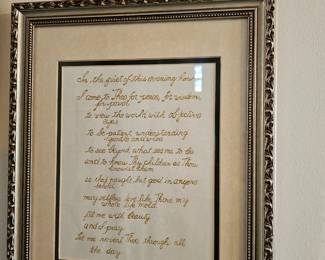 In the quiet of this evening hour
I come to Thee for peace, for wisdom,
for power
to view the world with
eyes
to be patient, understanding
gentle and wise
to see beyond what seems to be
and to know Thy children as Thou
knowest them
so that naught but good in anyone
behold
may love like Thine my
whole life mold
fill me with beauty
and I pray
Let me reveal Thee through all
the day.